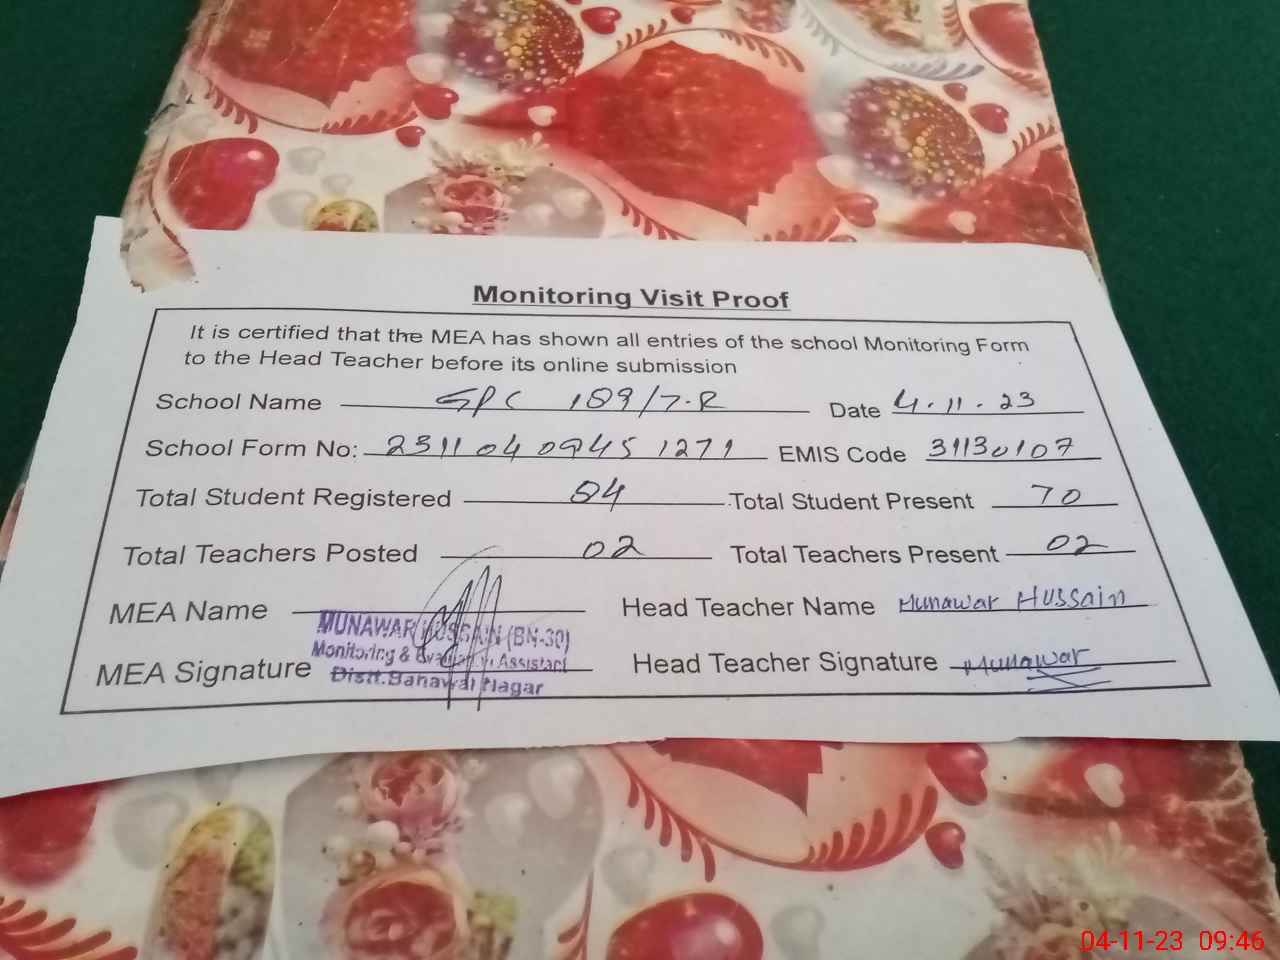 Monitoring Visit Proof
It is certified that the MEA has shown all entries of the school Monitoring Form
to the Head Teacher before its online submission
School Name GPC 189/7-R Date 4.11.23
School Form No: 231104 0945 1271 EMIS Code 31130107
Total Student Registered 84 Total Student Present 70
Total Teachers Posted 02 Total Teachers Present 02
MEA Name Head Teacher Name Munawar Hussain
MUNAWAR HUSSAIN (BN-30)
Monitoring & Evaluation Assistant
MEA Signature Head Teacher Signature Munawar
Distt. Bahawal Nagar
04-11-23 09:46